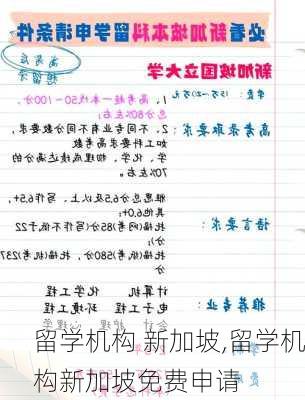 必看新加坡本科留学申请条件
高考后
想留学
新加坡国立大学
学费：15万-20万元
高考录取要求：1、高考超一本线50-100分，
总分80%左右
2、不同专业有不同分数要求，
如工科要求高考数
学、化学、物理成绩达满分的
70%左右。
语言要求：雅思总分6.5及以上、写作6.5+，
其他6.0+
托福(网考)85(写作不低于22
分)，托福(纸考)580分，托福(机考)237
分
推荐专业：计算机 化学工程
电子工程 环境工程
会计 护理 心理学
留学机构 新加坡,留学机
构新加坡免费申请